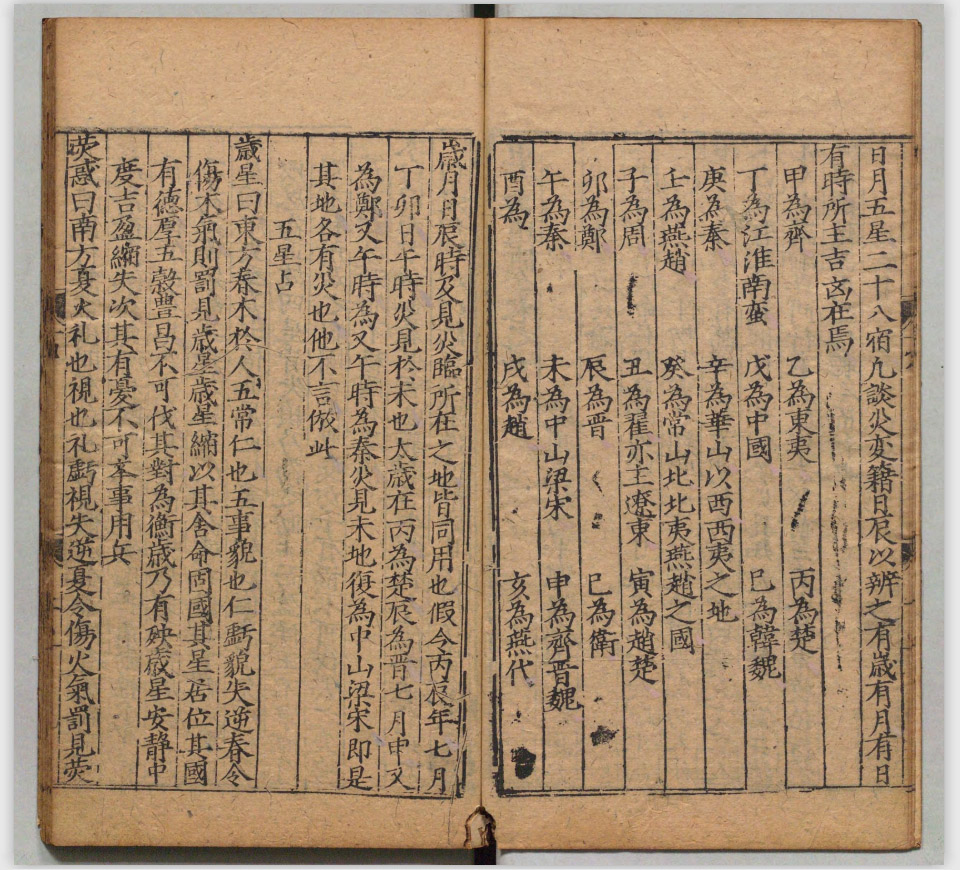 日月五星二十八宿凡談災变籍日辰以辨之有歲有月有日
有時所主吉凶在焉
甲為齊　乙為東夷　丙為楚
丁為江淮南蛮　戊為中國　巳為韓魏
庚為秦　辛為華山以西西夷之地
壬為燕趙　癸為常山北北夷燕趙之國
子為周　丑為翟亦主遼東　寅為趙楚
卯為鄭　辰為晋　巳為衛
午為秦　未為中山梁宋　申為齊晋魏
酉為　戌為趙　亥為燕代
歲月日辰時及見災臨所在之地皆同用也假令丙辰年七月
丁卯日午時災見於未也太歲在丙為楚辰為晋七月申又
為鄭又午時為又午時為秦災見未地復為中山梁宋即是
其地各有災也他不言倣此
五星占
歲星曰東方春木於人五常仁也五事貌也仁虧貌失逆春令
傷木氣則罰見歲星歲星縮以其舍命囯國其星居位其國
有德厚五穀豊昌不可伐其對為衡歲乃有殃歲星安靜中
度吉盈縮失次其有憂不可舉事用兵
荧惑曰南方夏火礼也視也礼虧視失逆夏令傷火氣罰見荧